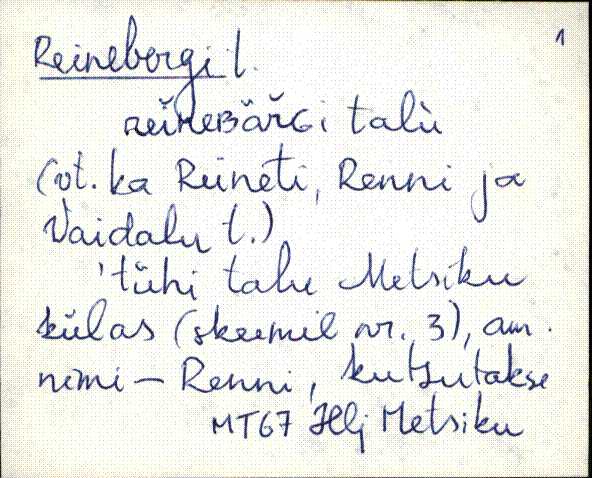 1
Reinebergi t.
REĭNEBĂŘGi talù
(vt. ka Reineti, Renni ja
Vaidalu t.)
'tühi talu Metsiku
külas (skeemil nr. 3), am.
nimi — Renni, kutsutakse
MT67 Hlj Metsiku